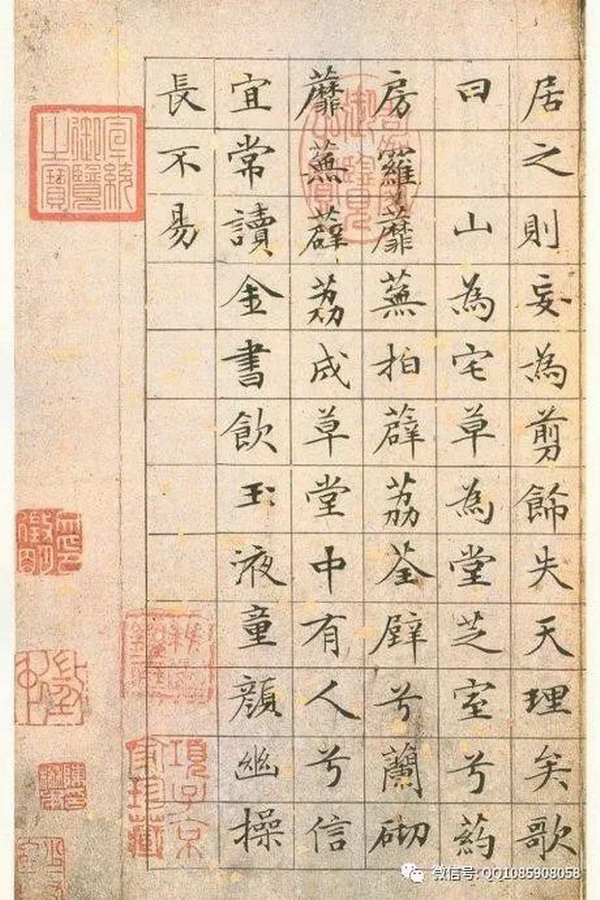 居之則妄為剪飾失天理矣歌
曰 山為宅草為堂芝室兮葯
房羅蘼蕪拍薜荔荃壁兮蘭砌
蘼蕪薜荔成草堂中有人兮信
宜常讀金書飲玉液童顏幽操
長不易
宣統御覽之寶
項子京家珍藏
微信号: QQ1085908058